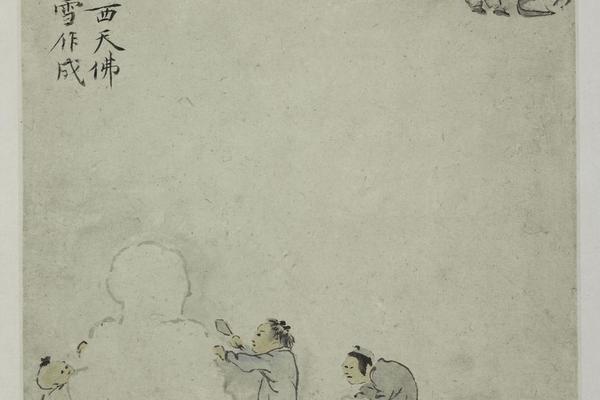 西天佛
雪作成